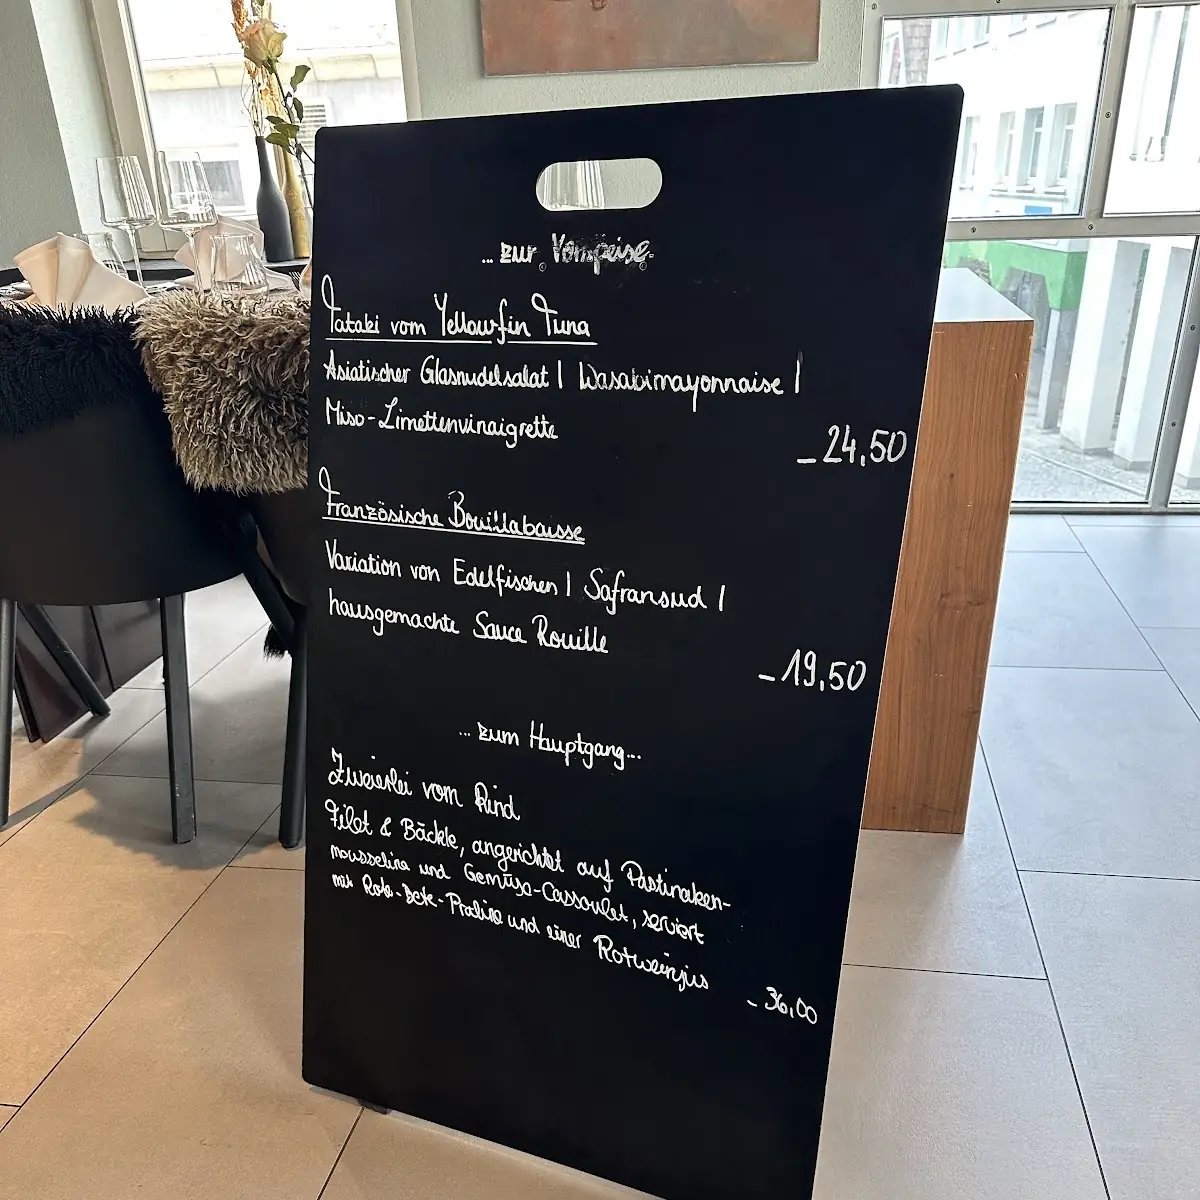 ... zur Vorspeise.
Tataki vom Yellowfin Tuna
Asiatischer Glasnudelsalat | Wasabimayonnaise |
Miso-Limettenvinaigrette
- 24,50
Französische Bouillabaisse
Variation von Edelfischen | Safransud |
hausgemachte Sauce Rouille
- 19,50
... zum Hauptgang...
Zweierlei vom Rind
Filet & Bäckle, angerichtet auf Pastinaken-
mousseline und Gemüse-Cassoulet, serviert
mit Rote-Bete-Praline und einer Rotweinjus
- 36,00